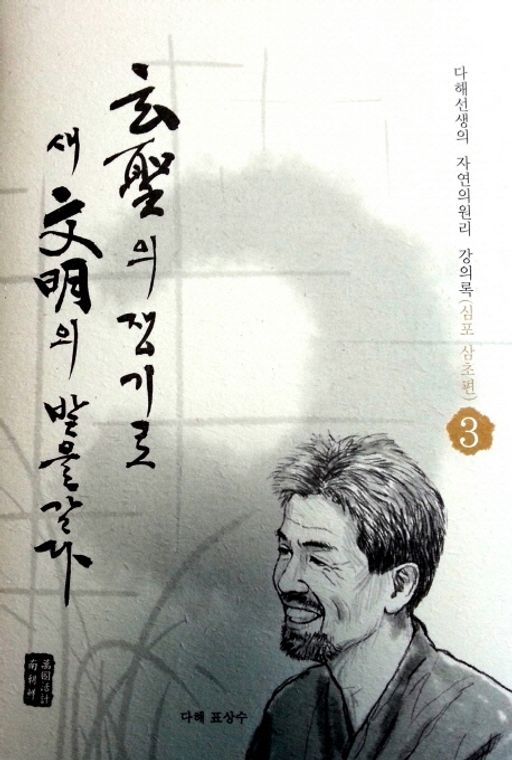 다해선생의 자연의원리 강의록(심포 삼초편)
3
玄聖의 쟁기로
새 文明의 밭을갈다
다해 표상수
萬國活計
南朝鮮